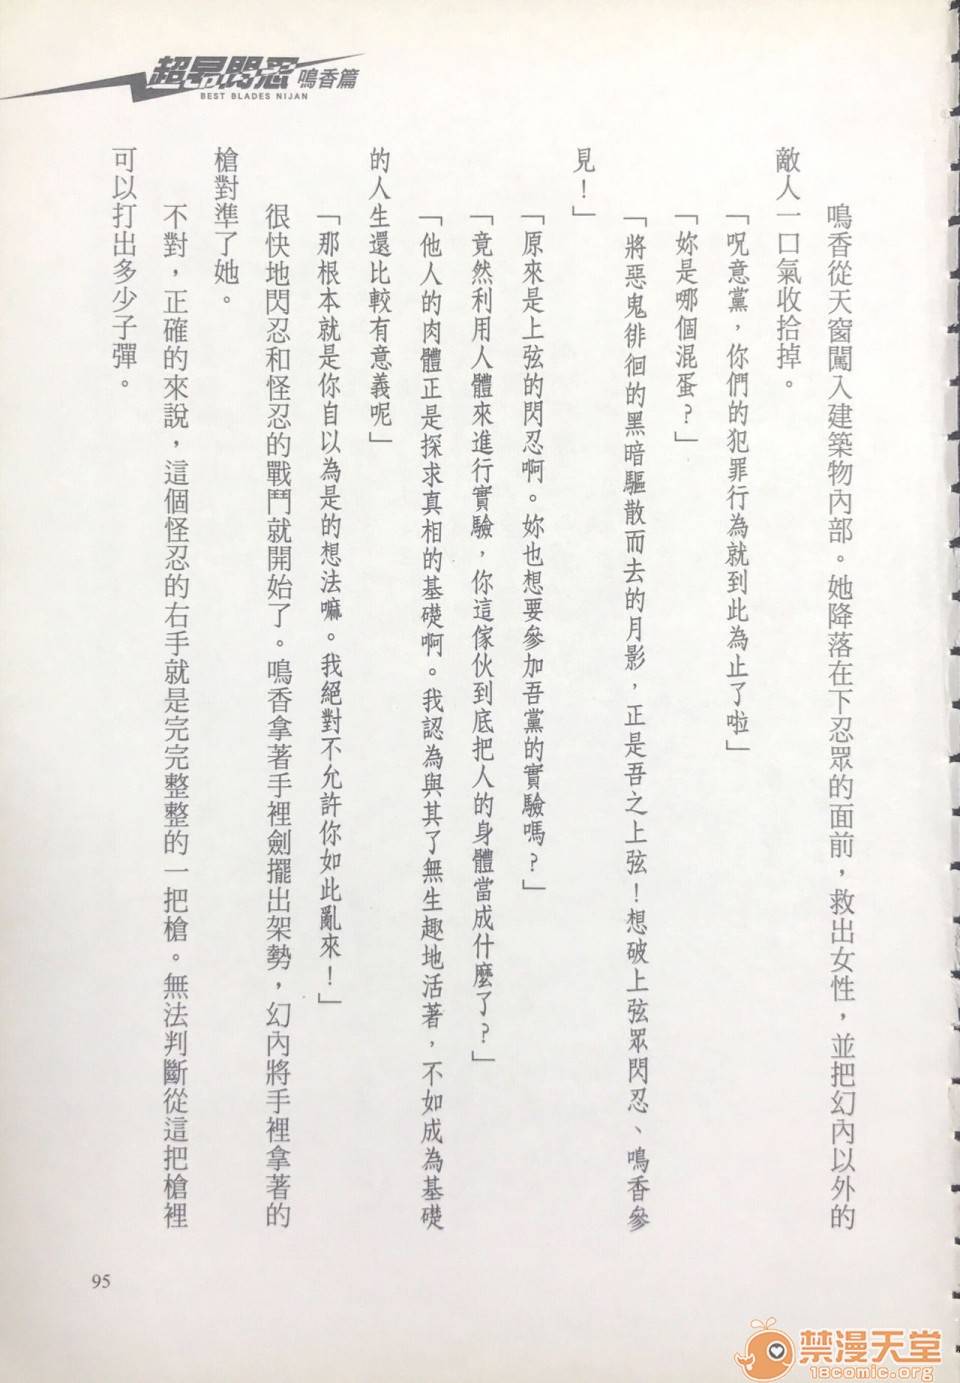 超昂閃忍 鳴香篇
BEST BLADES NIJAN
鳴香從天窗闖入建築物內部。她降落在下忍眾的面前，救出女性，並把幻內以外的
敵人一口氣收拾掉。
「呪意黨，你們的犯罪行為就到此為止了啦」
「妳是哪個混蛋？」
「將惡鬼徘徊的黑暗驅散而去的月影，正是吾之上弦！想破上弦眾閃忍、鳴香參
見！」
「原來是上弦的閃忍啊。妳也想要參加吾黨的實驗嗎？」
「竟然利用人體來進行實驗，你這傢伙到底把人的身體當成什麼了？」
「他人的肉體正是探求真相的基礎啊。我認為與其了無生趣地活著，不如成為基礎
的人生還比較有意義呢」
「那根本就是你自以為是的想法嘛。我絕對不允許你如此亂來！」
很快地閃忍和怪忍的戰鬥就開始了。鳴香拿著手裡劍擺出架勢，幻內將手裡拿著的
槍對準了她。
不對，正確的來說，這個怪忍的右手就是完完整整的一把槍。無法判斷從這把槍裡
可以打出多少子彈。
95
禁漫天堂
18comic.org